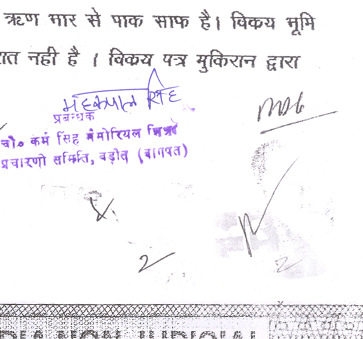 ऋण भार से पाक साफ है। विक्रय भूमि
नही है । विक्रय पत्र मुकिरान द्वारा
प्रबन्धक
चौ० कर्म सिंह मैमोरियल
प्रचारणी समिति, बड़ौत (बागपत)
2
2
INDIA NON JUDICIAL